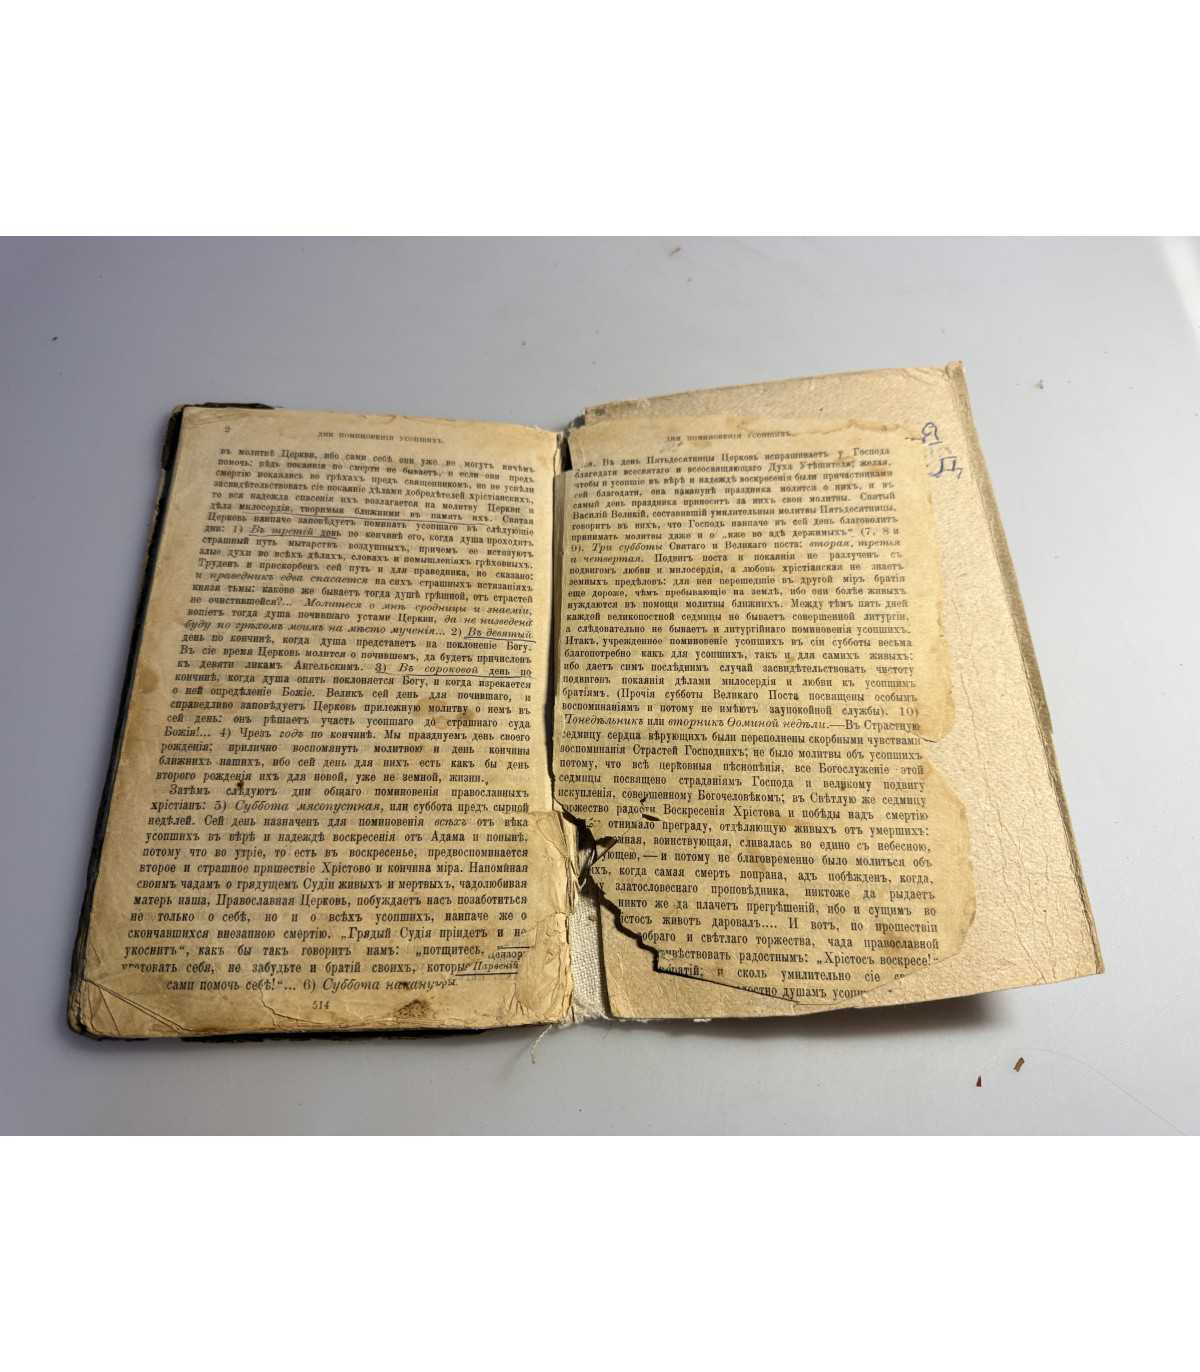 2
ДНИ ПОМИНОВЕНІЯ УСОПШИХЪ.
въ молитвѣ Церкви, ибо сами себѣ они уже не могутъ ничѣмъ
помочь: вѣдь покаянія по смерти не бываетъ, и если они предъ
смертію покаялись во грѣхахъ предъ священникомъ, но не успѣли
засвидѣтельствовать сіе покаяніе дѣлами добродѣтелей христіанскихъ,
то вся надежда спасенія ихъ возлагается на молитву Церкви и
дѣла милосердія, творимыя ближними въ память ихъ. Святая
Церковь наипаче заповѣдуетъ поминать усопшаго въ слѣдующіе
дни: 1) Въ третій день по кончинѣ его, когда душа проходитъ
страшный путь мытарствъ воздушныхъ, причемъ ее истязуютъ
злые духи во всѣхъ дѣлахъ, словахъ и помышленіяхъ грѣховныхъ.
Труденъ и прискорбенъ сей путь и для праведника, но сказано:
и праведникъ едва спасается на сихъ страшныхъ истязаніяхъ
князя тьмы: каково же бываетъ тогда душѣ грѣшной, отъ страстей
не очистившейся?... Молитеся о мнѣ сродницы и знаеміи,
вопіетъ тогда душа почившаго устами Церкви, да не низведена
буду по грѣхомъ моимъ на мѣсто мученія... 2) Въ девятый
день по кончинѣ, когда душа предстанетъ на поклоненіе Богу.
Въ сіе время Церковь молится о почившемъ, да будетъ причисленъ
къ девяти ликамъ Ангельскимъ. 3) Въ сороковой день по
кончинѣ, когда душа опять поклоняется Богу, и когда изрекается
о ней опредѣленіе Божіе. Великъ сей день для почившаго, и
справедливо заповѣдуетъ Церковь прилежную молитву о немъ въ
сей день: онъ рѣшаетъ участь усопшаго до страшнаго суда
Божія!... 4) Чрезъ годъ по кончинѣ. Мы празднуемъ день своего
рожденія; прилично воспомянуть молитвою и день кончины
ближнихъ нашихъ, ибо сей день для нихъ есть какъ бы день
второго рожденія ихъ для новой, уже не земной, жизни.
Затѣмъ слѣдуютъ дни общаго поминовенія православныхъ
христіанъ: 5) Суббота мясопустная, или суббота предъ сырной
недѣлей. Сей день назначенъ для поминовенія всѣхъ отъ вѣка
усопшихъ въ вѣрѣ и надеждѣ воскресенія отъ Адама и понынѣ,
потому что во утріе, то есть въ воскресенье, предвоспоминается
второе и страшное пришествіе Христово и кончина міра. Напоминая
своимъ чадамъ о грядущемъ Судіи живыхъ и мертвыхъ, чадолюбивая
матерь наша, Православная Церковь, побуждаетъ насъ позаботиться
не только о себѣ, но и о всѣхъ усопшихъ, наипаче же о
скончавшихся внезапною смертію. „Грядый Судія пріидетъ и не
укоснитъ“, какъ бы такъ говоритъ намъ: „потщитесь,
уготовать себя, не забудьте и братій своихъ, которые
сами помочь себѣ!“... 6) Суббота наканунѣ
Цензор
Парвскій
514
ДНИ ПОМИНОВЕНІЯ УСОПШИХЪ.
Въ день Пятьдесятницы Церковь испрашиваетъ у Господа
благодати всесвятаго и всеосвящающаго Духа Утѣшителя; желая,
чтобы и усопшіе въ вѣрѣ и надеждѣ воскресенія были причастниками
сей благодати, она наканунѣ праздника молится о нихъ, и въ
самый день праздника приноситъ за нихъ свои молитвы. Святый
Василій Великій, составившій умилительныя молитвы Пятьдесятницы,
говоритъ въ нихъ, что Господь наипаче въ сей день благоволитъ
принимать молитвы даже и о „иже во адѣ держимыхъ“ (7, 8 и
9). Три субботы Святаго и Великаго поста: вторая, третья
и четвертая. Подвигъ поста и покаянія не разлученъ съ
подвигомъ любви и милосердія, а любовь христіанская не знаетъ
земныхъ предѣловъ: для нея перешедшіе въ другой міръ братія
еще дороже, чѣмъ пребывающіе на землѣ, ибо они болѣе живыхъ
нуждаются въ помощи молитвы ближнихъ. Между тѣмъ пять дней
каждой великопостной седмицы не бываетъ совершенной литургіи,
а слѣдовательно не бываетъ и литургійнаго поминовенія усопшихъ.
Итакъ, учрежденное поминовеніе усопшихъ въ сіи субботы весьма
благопотребно какъ для усопшихъ, такъ и для самихъ живыхъ:
ибо даетъ симъ послѣднимъ случай засвидѣтельствовать чистоту
подвиговъ покаянія дѣлами милосердія и любви къ усопшимъ
братіямъ. (Прочія субботы Великаго Поста посвящены особымъ
воспоминаніямъ и потому не имѣютъ заупокойной службы). 10)
Понедѣльникъ или вторникъ Ѳоминой недѣли.—Въ Страстную
седмицу сердца вѣрующихъ были переполнены скорбными чувствами
воспоминанія Страстей Господнихъ; не было молитвы объ усопшихъ
потому, что всѣ церковныя пѣснопѣнія, все Богослуженіе этой
седмицы посвящено страданіямъ Господа и великому подвигу
искупленія, совершенному Богочеловѣкомъ; въ Свѣтлую же седмицу
торжество радости Воскресенія Христова и побѣды надъ смертію
отнимало преграду, отдѣляющую живыхъ отъ умершихъ:
земная, воинствующая, сливалась во едино съ небесною,
—и потому не благовременно было молиться объ
когда самая смерть попрана, адъ побѣжденъ, когда,
златословеснаго проповѣдника, никтоже да рыдаетъ
никто же да плачетъ прегрѣшеній, ибо и сущимъ во
животъ даровалъ.... И вотъ, по прошествіи
добраго и свѣтлаго торжества, чада православной
привѣтствовать радостнымъ: „Христосъ воскресе!“
братій; и сколь умилительно сіе
радостно душамъ